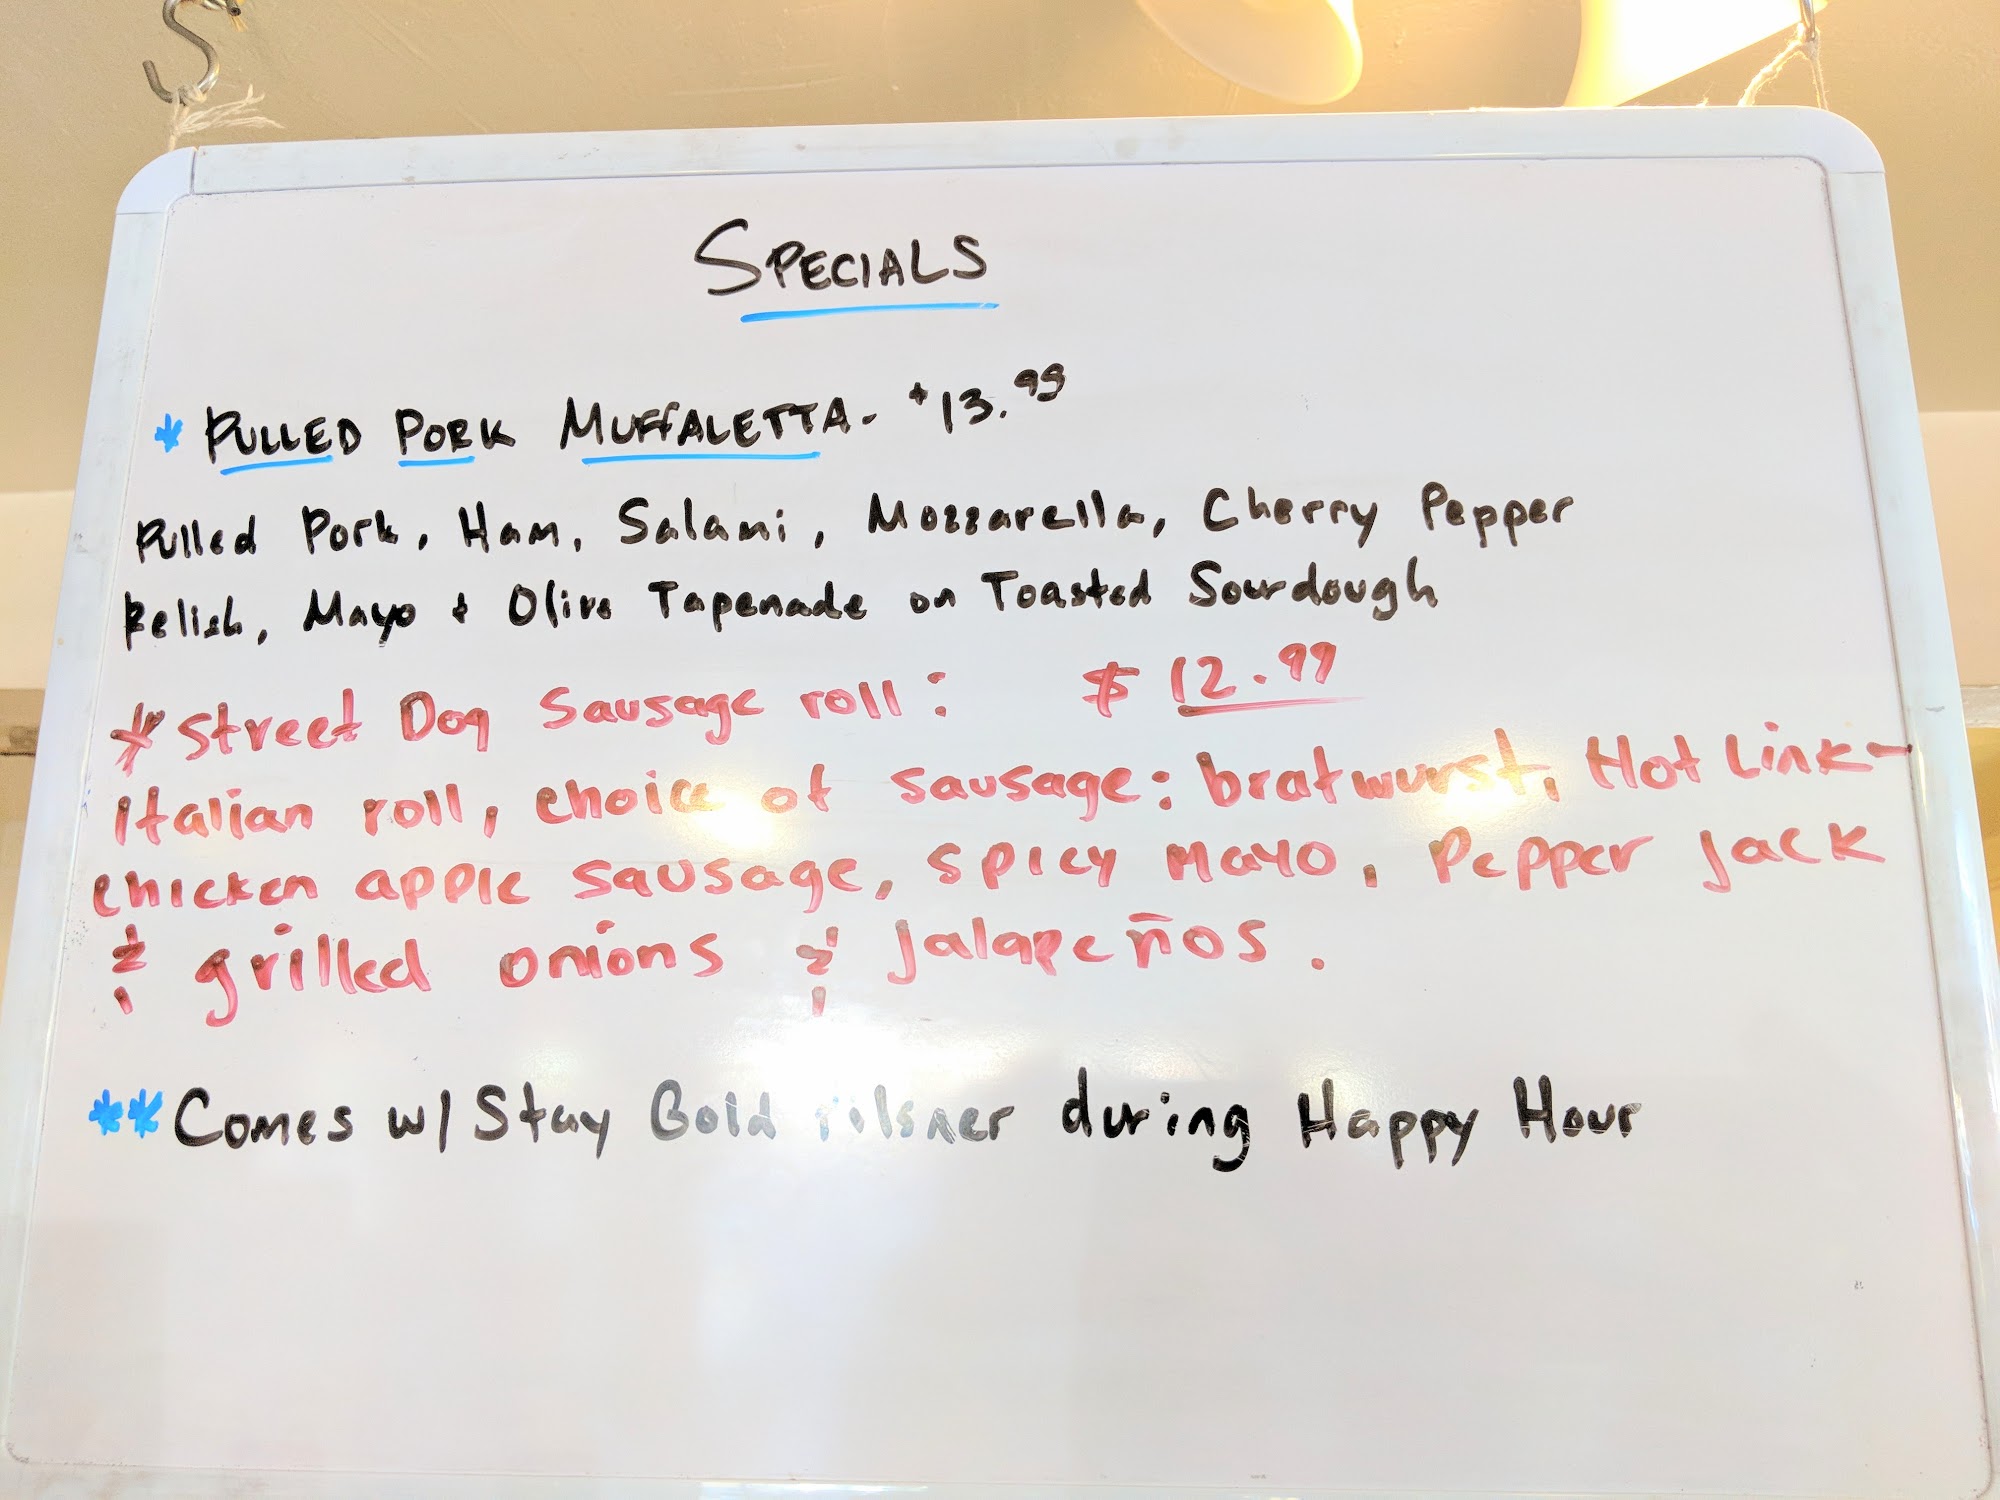 SPECIALS
* PULLED PORK MUFFALETTA - $13.99
Pulled Pork, Ham, Salami, Mozzarella, Cherry Pepper
Relish, Mayo + Olive Tapenade on Toasted Sourdough
* Street Dog Sausage roll: $12.99
italian roll, choice of sausage: bratwurst, Hot Link -
chicken apple sausage, spicy mayo, Pepper jack
& grilled onions & jalapeños.
** Comes w/ Stay Gold Pilsner during Happy Hour